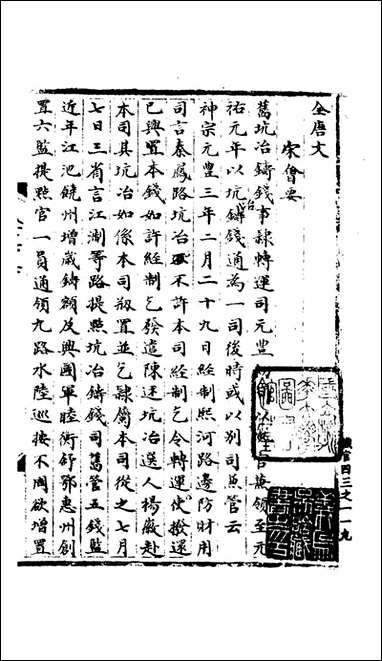 全唐文
宋會要
舊坑冶鑄錢事隸轉運司元豐官兼領至元
祐元年以坑冶鑄錢通為一司後時或以別司兼管云
神宗元豐三年二月二十九日經制熙河路邊防財用
司言秦鳳路坑冶不許本司經制乞令轉運使撥還
已興置本錢如許經制乞發遣陳述坑冶選人楊徽赴
本司其坑冶如係本司刱置並乞隸屬本司從之七月
七日三省言江淛等路提點坑冶鑄錢司舊管五錢監
近年江池饒州增歲鑄額及興國軍睦衡舒鄂惠州創
置六監提點官一員通領九路水陸巡按不周欲增置
職官四三之一一九